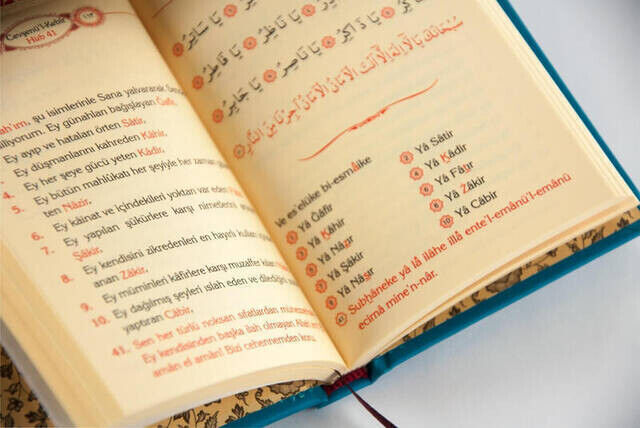 Cevşenü'l-Kebîr
Hüb 41
şu isimlerinle Sana yalvararak,
Ey günahları bağışlayan Ğafir,
Ey ayıp ve hataları örten Sâtir,
Ey düşmanlarını kahreden Kâhir,
4. Ey her şeye gücü yeten Kâdir,
5. Ey bütün mahlûkatı her şeyiyle her zaman
ten Nâzir,
6. Ey kâinat ve içindekileri yoktan var eden
7. Ey yapılan şükürlere karşı nimetlerini
Şâkir,
8. Ey kendisini zikredenleri en hayırlı kulları
anan Zâkir,
9. Ey müminleri kâfirlere karşı muzaffer kılan
10. Ey dağılmış şeyleri ıslah eden ve dilediğini
yaptıran Câbir,
41. Sen her türlü noksan sıfatlardan münezzehsin
Ey kendisinden başka ilah olmayan Allah
amân el amân! Bizi cehennemden koru
يَا سَاتِرُ
يَا ذَاكِرُ يَا نَاصِرُ يَا جَابِرُ
سُبْحَانَكَ يَا لَا إِلٰهَ إِلَّا أَنْتَ الْأَمَانُ الْأَمَانُ أَجِرْنَا مِنَ النَّارِ
Ve es'elüke bi-esmâike
Yâ Ğâfir
Yâ Sâtir
Yâ Kâhir
Yâ Kâdir
Yâ Nâzır
Yâ Fâtır
Yâ Şâkir
Yâ Zâkir
Yâ Nâsır
Yâ Câbir
Subhâneke yâ lâ ilâhe illâ ente'l-emânü'l-emânü
ecirnâ mine'n-nâr.